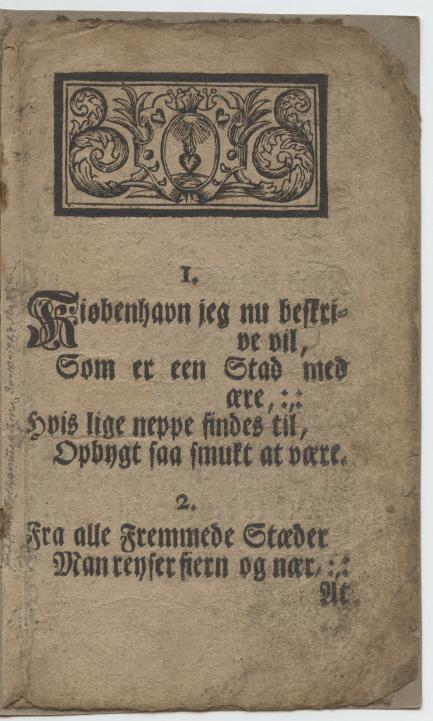 1.
Kiøbenhavn jeg nu beskri-
ve vil,
Som er een Stad med
ære, :,:
Hvis lige neppe findes til,
Opbygt saa smukt at være.
2.
Fra alle Fremmede Stæder
Man reyser fiern og nær, :,:
At